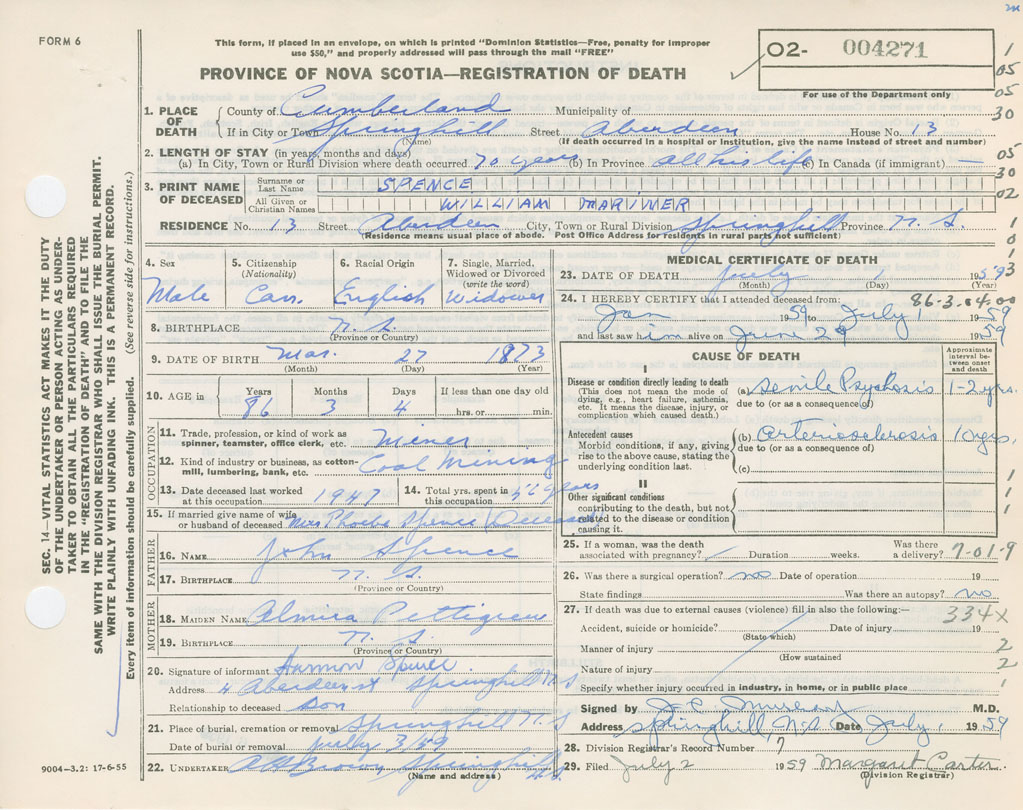 FORM 6
This form, if placed in an envelope, on which is printed "Dominion Statistics—Free, penalty for improper
use $50," and properly addressed will pass through the mail "FREE"
PROVINCE OF NOVA SCOTIA—REGISTRATION OF DEATH
O2- 004271
For use of the Department only
1
05
05
30
05
30
02
1
0
1
3
SEC. 14—VITAL STATISTICS ACT MAKES IT THE DUTY
OF THE UNDERTAKER OR PERSON ACTING AS UNDER-
TAKER TO OBTAIN ALL THE PARTICULARS REQUIRED
IN THE "REGISTRATION OF DEATH" AND TO FILE THE
SAME WITH THE DIVISION REGISTRAR WHO SHALL ISSUE THE BURIAL PERMIT.
WRITE PLAINLY WITH UNFADING INK. THIS IS A PERMANENT RECORD.
Every item of information should be carefully supplied. (See reverse side for instructions.)
1. PLACE OF DEATH County of Cumberland Municipality of
If in City or Town Springhill Street Aberdeen House No. 13
(Name) (If death occurred in a hospital or Institution, give the name instead of street and number)
2. LENGTH OF STAY (in years, months and days)
(a) In City, Town or Rural Division where death occurred 70 years (b) In Province all his life (c) In Canada (if immigrant) —
3. PRINT NAME OF DECEASED Surname or Last Name SPENCE
All Given or Christian Names WILLIAM MARINER
RESIDENCE No. 13 Street Aberdeen City, Town or Rural Division Springhill Province N.S.
(Residence means usual place of abode. Post Office Address for residents in rural parts not sufficient)
4. Sex Male
5. Citizenship (Nationality) Can.
6. Racial Origin English
7. Single, Married, Widowed or Divorced (write the word) Widower
8. BIRTHPLACE N.S.
(Province or Country)
9. DATE OF BIRTH Mar. 27 1873
(Month) (Day) (Year)
10. AGE in Years 86 Months 3 Days 4 If less than one day old
hrs. or min.
OCCUPATION
11. Trade, profession, or kind of work as spinner, teamster, office clerk, etc. Miner
12. Kind of industry or business, as cotton-mill, lumbering, bank, etc. Coal Mining
13. Date deceased last worked at this occupation 1947
14. Total yrs. spent in this occupation years
15. If married give name of wife or husband of deceased Mrs Phoebe Spence (Deceased)
FATHER
16. NAME John Spence
17. BIRTHPLACE N.S.
(Province or Country)
MOTHER
18. MAIDEN NAME Almira Pettigrew
19. BIRTHPLACE N.S.
(Province or Country)
20. Signature of informant Harmon Spence
Address 4 Aberdeen st Springhill N.S
Relationship to deceased Son
21. Place of burial, cremation or removal Springhill N.S.
Date of burial or removal July 3/59
22. UNDERTAKER Brown, Springhill N.S.
(Name and address)
9004-3.2: 17-6-55
MEDICAL CERTIFICATE OF DEATH
23. DATE OF DEATH July 1 1959
(Month) (Day) (Year)
86-3.04.00
24. I HEREBY CERTIFY that I attended deceased from:
Jan 1959 to July 1 1959
and last saw him alive on June 29 1959
CAUSE OF DEATH
Approximate interval between onset and death
I
Disease or condition directly leading to death
(This does not mean the mode of dying, e.g., heart failure, asthenia, etc. It means the disease, injury, or complication which caused death.)
(a) Senile Psychosis 1-2 yrs.
due to (or as a consequence of)
Antecedent causes
Morbid conditions, if any, giving rise to the above cause, stating the underlying condition last.
(b) Arteriosclerosis 10 yrs.
due to (or as a consequence of)
(c)
II
Other significant conditions
contributing to the death, but not related to the disease or condition causing it.
1
1
1
25. If a woman, was the death associated with pregnancy? Duration weeks. Was there a delivery?
7-01-9
26. Was there a surgical operation? no Date of operation 19
State findings Was there an autopsy? no
27. If death was due to external causes (violence) fill in also the following:—
334X
Accident, suicide or homicide? Date of injury 19
(State which)
Manner of injury 2
(How sustained
Nature of injury 2
Specify whether injury occurred in industry, in home, or in public place 1
Signed by M.D.
Address Springhill, N.S. Date July 1, 1959
28. Division Registrar's Record Number 7
29. Filed July 2 1959 Margaret Carter
(Division Registrar)